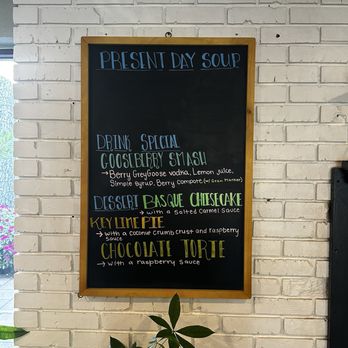 PRESENT DAY SOUP
DRINK SPECIAL
GOOSEBERRY SMASH
→ Berry GreyGoose vodka, Lemon juice,
Simple Syrup, Berry compote (w/ Gran Marnier)
DESSERT BASQUE CHEESECAKE
→ with a Salted Carmel Sauce
KEY LIME PIE
→ with a coconut crumb crust and raspberry
sauce
CHOCOLATE TORTE
→ with a raspberry sauce